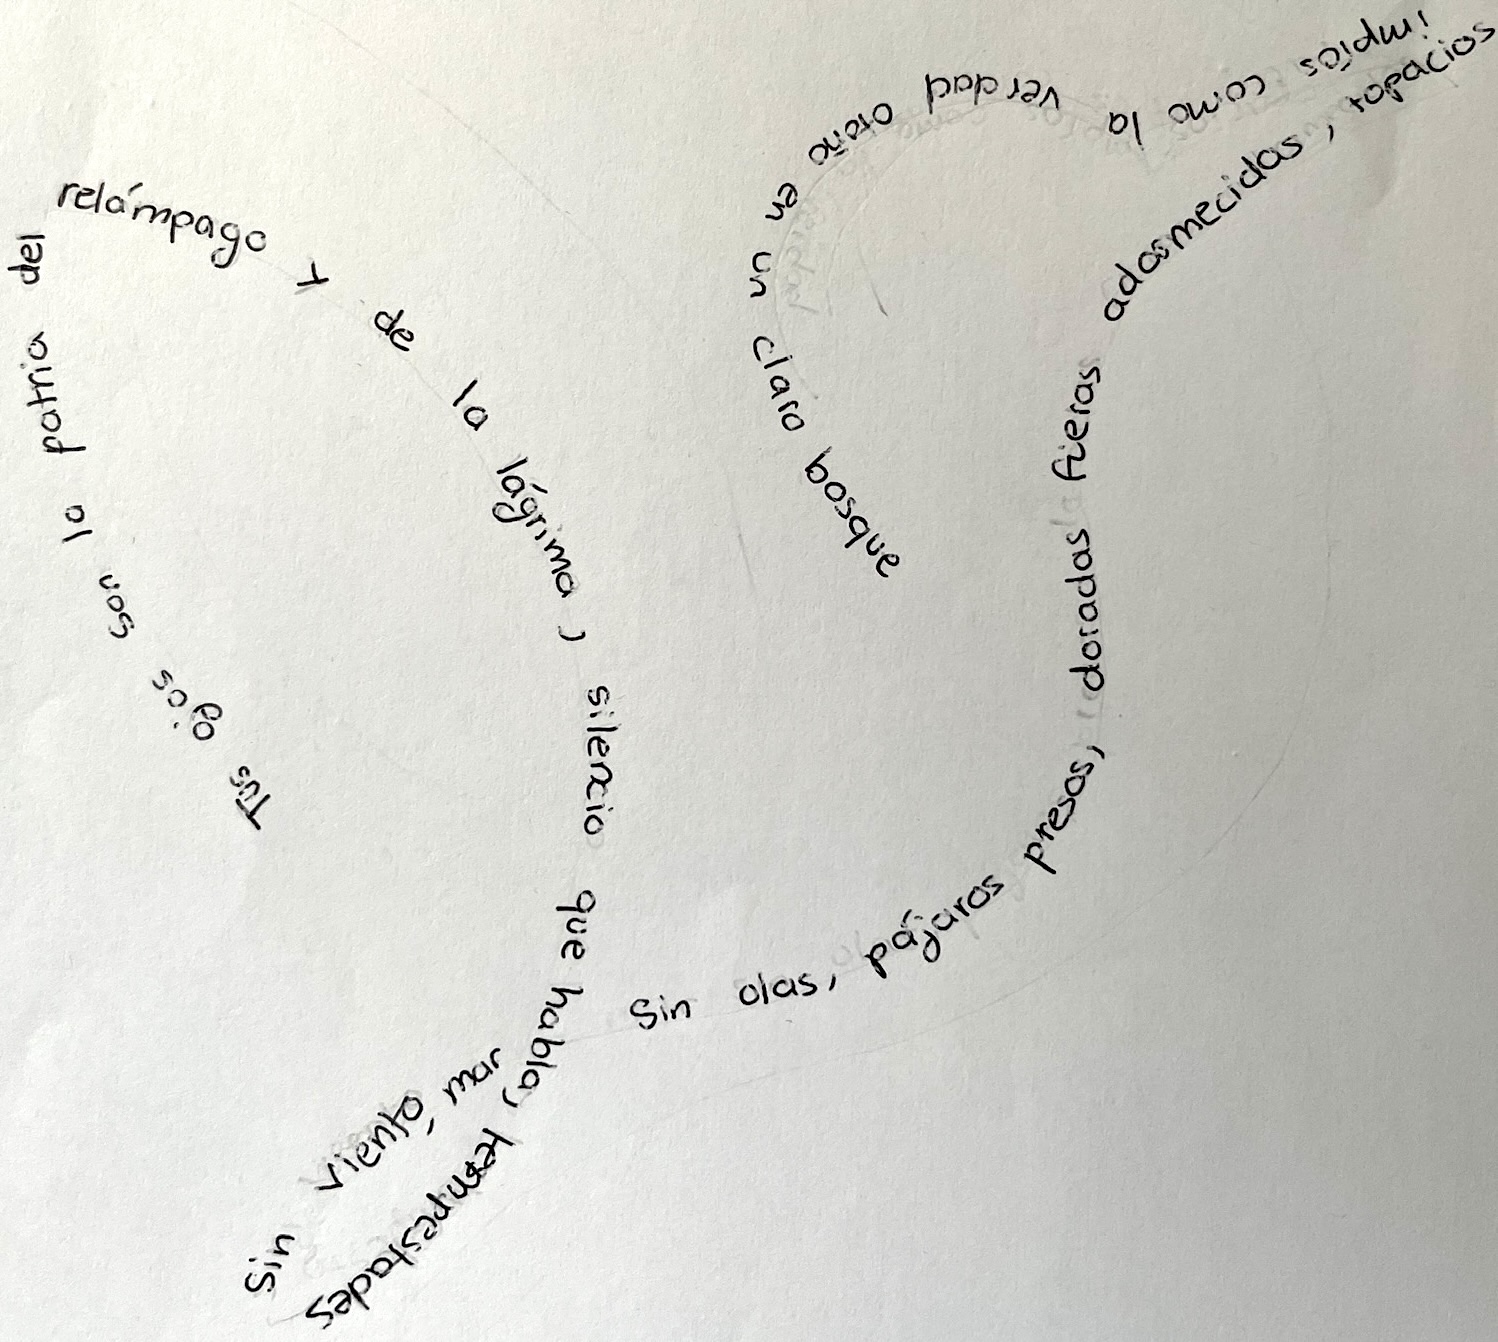 Tus ojos son la patria del
relámpago y de la lágrima, silencio que habla, tempestades
sin viento, mar sin olas, pájaros presos, doradas fieras adosmecidas, topacios
impíos como la verdad otoño en un claro bosque